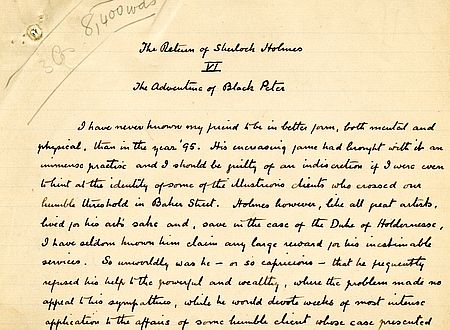 8,400 wds
The Return of Sherlock Holmes
VI
The Adventure of Black Peter
I have never known my friend to be in better form, both mental and
physical, than in the year 95. His increasing fame had brought with it an
immense practise and I should be guilty of an indiscretion if I were even
to hint at the identity of some of the illustrious clients who crossed our
humble threshold in Baker Street. Holmes however, like all great artists,
lived for his art's sake and, save in the case of the Duke of Holdernesse,
I have seldom known him claim any large reward for his inestimable
services. So unworldly was he – or so capricious – that he frequently
refused his help to the powerful and wealthy, where the problem made no
appeal to his sympathies, while he would devote weeks of most intense
application to the affairs of some humble client whose case presented